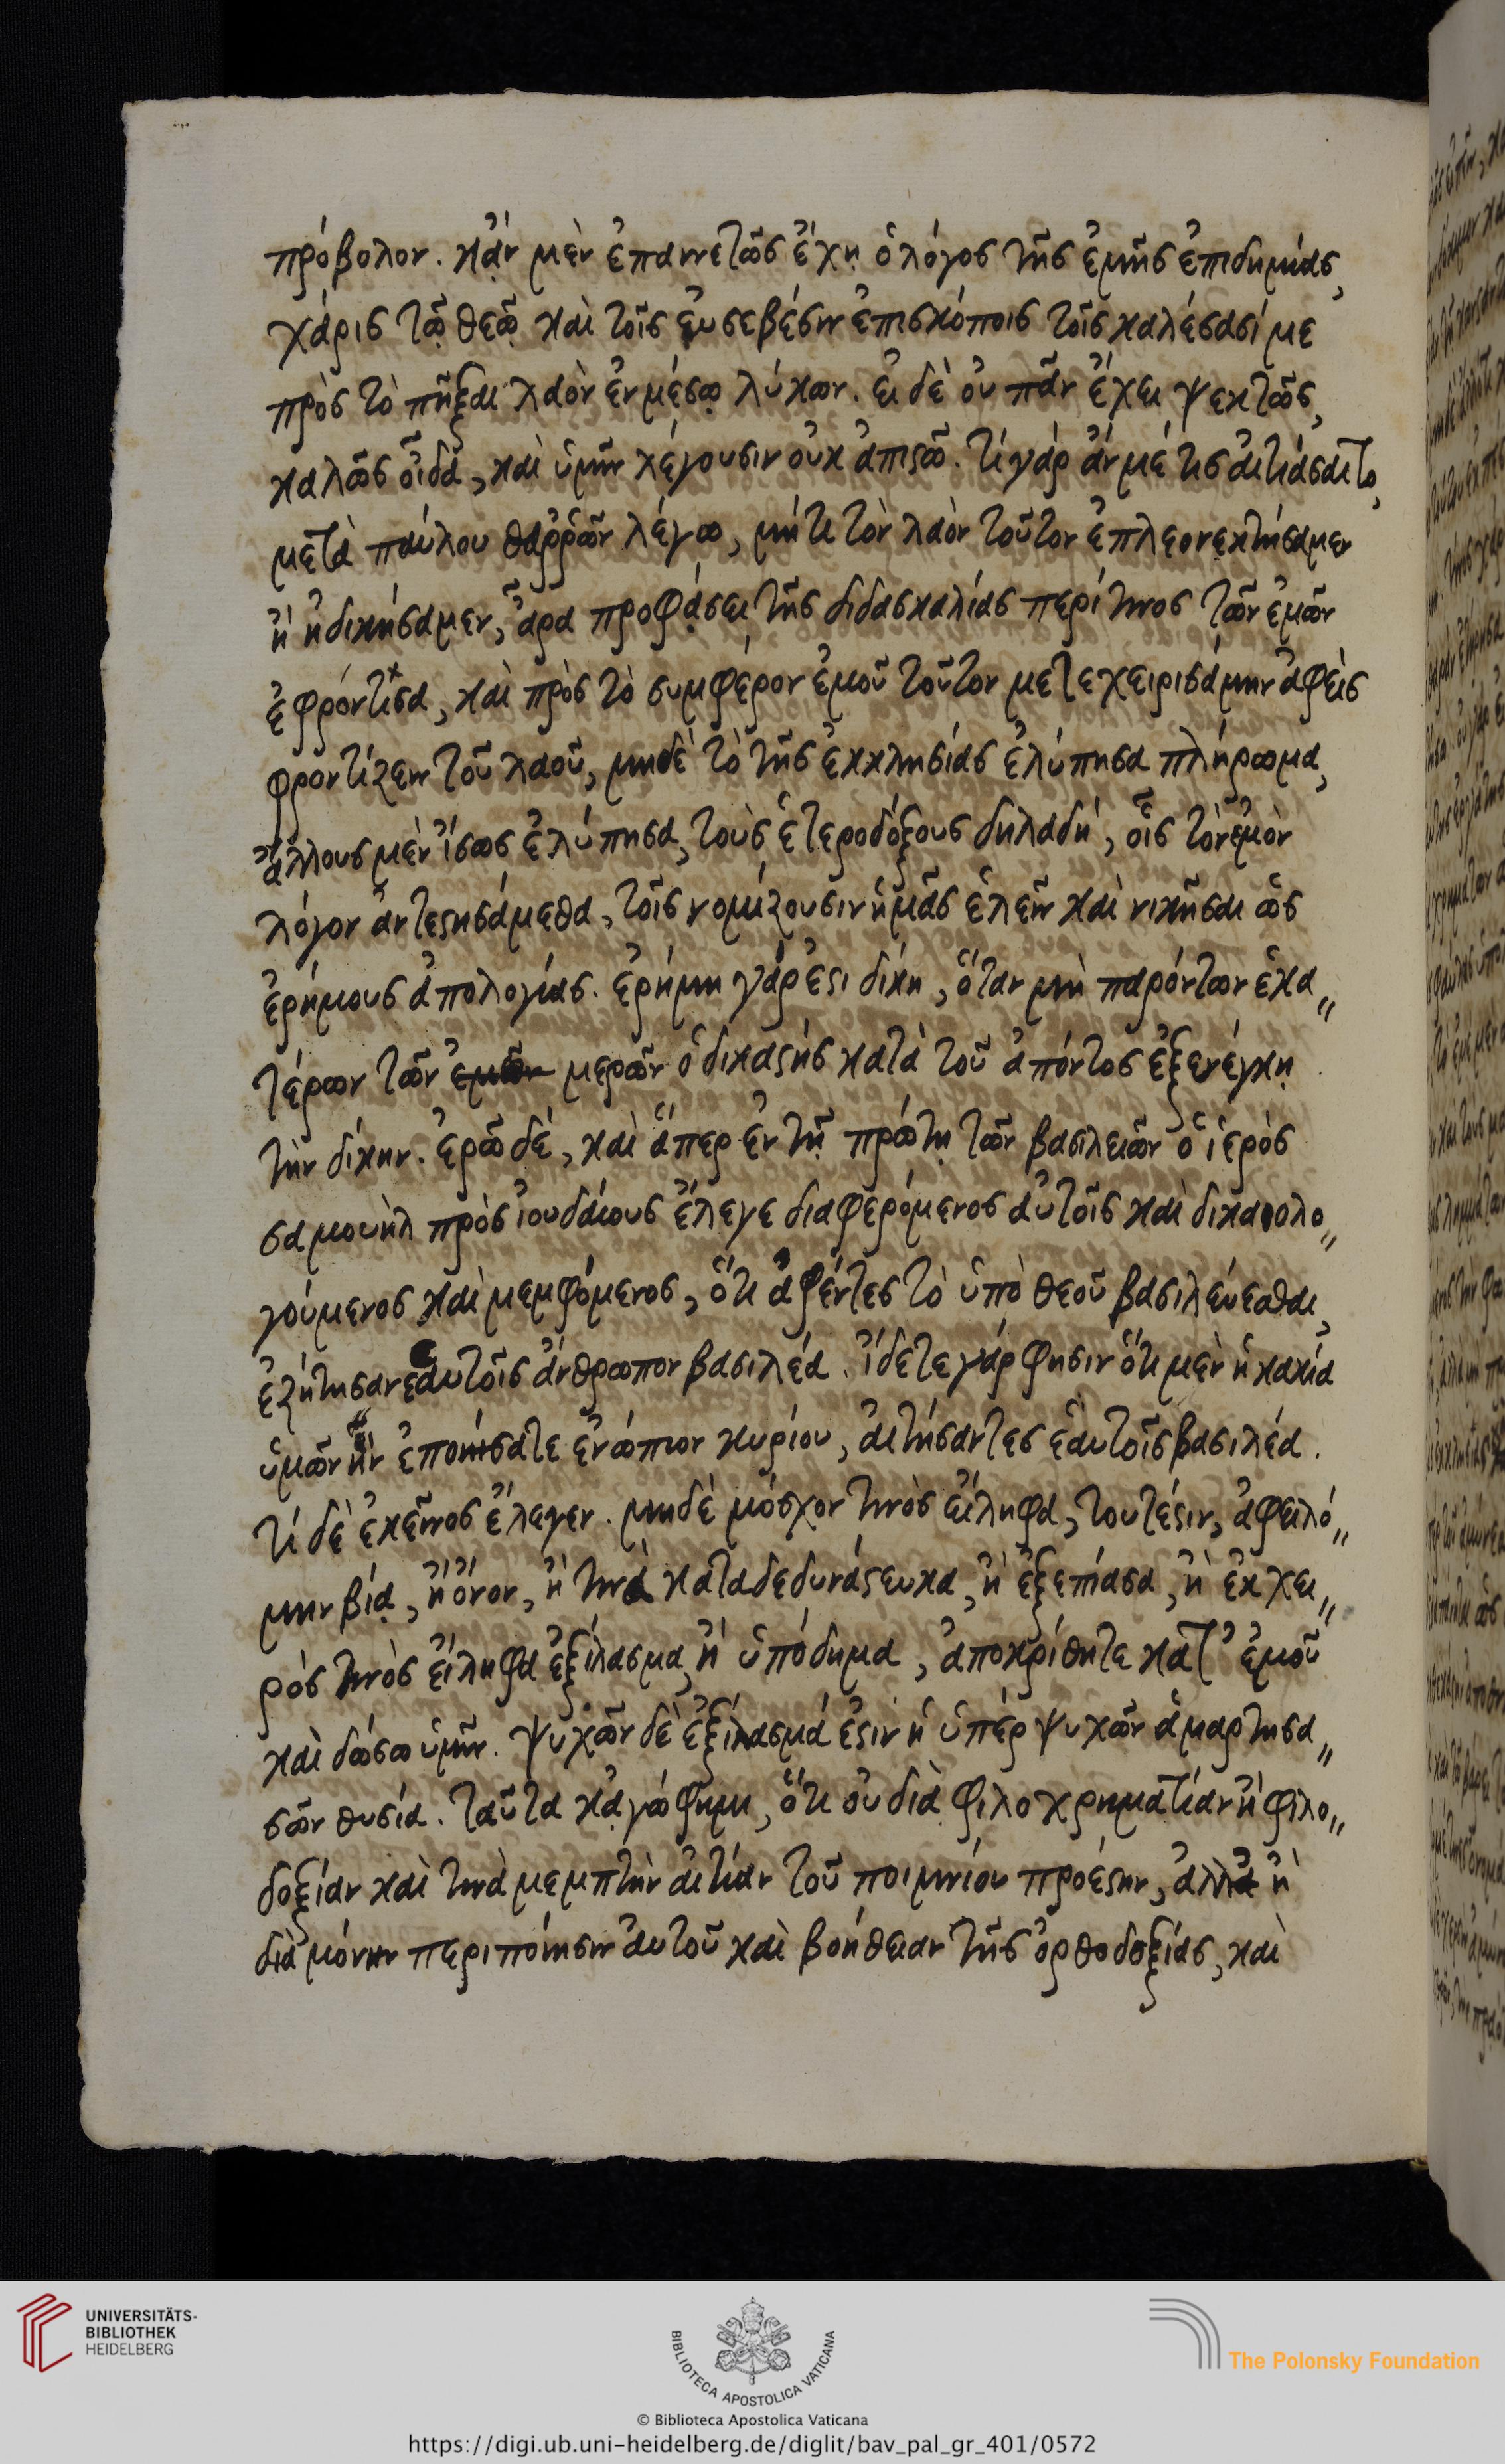 πρόβολον. κἂν μὲν ἐπαινετῶς ἔχῃ ὁ λόγος τῆς ἐμῆς ἐπιδημίας,
χάρις τῷ θεῷ καὶ τοῖς εὐσεβέσιν ἐπισκόποις τοῖς καλέσασί με
πρὸς τὸ πῆξαι λαὸν ἐν μέσῳ λύκων. εἰ δὲ οὐ πᾶν ἔχει ψεκτῶς,
καλῶς οἶδα, καὶ ὑμῖν λέγουσιν οὐκ ἀπιστῶ. τί γὰρ ἄν μέ τις αἰτιάσαιτο,
μετὰ παύλου θαῤῥῶν λέγω, μήτε τὸν λαὸν τοῦτον ἐπλεονεκτήσαμεν
ἢ ἠδικήσαμεν, ἆρα προφάσει τῆς διδασκαλίας περί τινος τῶν ἐμῶν
ἐφρόντισα, καὶ πρὸς τὸ συμφέρον ἐμοῦ τοῦτον μετεχειρισάμην ἀφεὶς
φροντίζειν τοῦ λαοῦ, μηδὲ τὸ τῆς ἐκκλησίας ἐλύπησα πλήρωμα,
ἄλλους μὲν ἴσως ἐλύπησα, τοὺς ἑτεροδόξους δηλαδή, οἷς τὸν ἐμὸν
λόγον ἀντεστησάμεθα, τοῖς νομίζουσιν ἡμᾶς ἑλεῖν καὶ νικῆσαι ὡς
ἐρήμους ἀπολογίας. ἐρήμη γάρ ἐστι δίκη, ὅταν μὴ παρόντων ἑκα〃
τέρων τῶν ἐμῶν μερῶν ὁ δικαστὴς κατὰ τοῦ ἀπόντος ἐξενέγκῃ
τὴν δίκην. ἐρῶ δέ, καὶ ἅπερ ἐν τῇ πρώτῃ τῶν βασιλειῶν ὁ ἱερὸς
σαμουὴλ πρὸς ἰουδαίους ἔλεγε διαφερόμενος αὐτοῖς καὶ δικαιολο〃
γούμενος καὶ μεμφόμενος, ὅτι ἀφέντες τὸ ὑπὸ θεοῦ βασιλεύεσθαι,
ἐζήτησαν ἑαυτοῖς ἄνθρωπον βασιλέα. ἴδετε γάρ φησιν ὅτι μὲν ἡ κακία
ὑμῶν ἣν ἐποιήσατε ἐνώπιον κυρίου, αἰτήσαντες ἑαυτοῖς βασιλέα.
τί δὲ ἐκεῖνος ἔλεγεν. μηδὲ μόσχον τινὸς εἴληφα, τουτέστιν, ἀφειλό〃
μην βίᾳ, ἢ ὄνον, ἢ τινὰ καταδεδυνάστευκα, ἢ ἐξεπίασα, ἢ ἐκ χει〃
ρὸς τινὸς εἴληφα ἐξίλασμα, ἢ ὑπόδημα, ἀποκρίθητε κατ’ ἐμοῦ
καὶ δώσω ὑμῖν. ψυχῶν δὲ ἐξίλασμά ἐστιν ἡ ὑπὲρ ψυχῶν ἁμαρτησα〃
σῶν θυσία. ταῦτα κἀγώ φημι, ὅτι οὐ διὰ φιλοχρηματίαν ἢ φιλο〃
δοξίαν καὶ τινὰ μεμπτὴν αἰτίαν τοῦ ποιμνίου προέστην, ἀλλὰ ἢ
διὰ μόνην περιποίησιν αὐτοῦ καὶ βοήθειαν τῆς ὀρθοδοξίας, καὶ
UNIVERSITÄTS-
BIBLIOTHEK
HEIDELBERG
BIBLIOTECA APOSTOLICA VATICANA
The Polonsky Foundation
© Biblioteca Apostolica Vaticana
https://digi.ub.uni-heidelberg.de/diglit/bav_pal_gr_401/0572